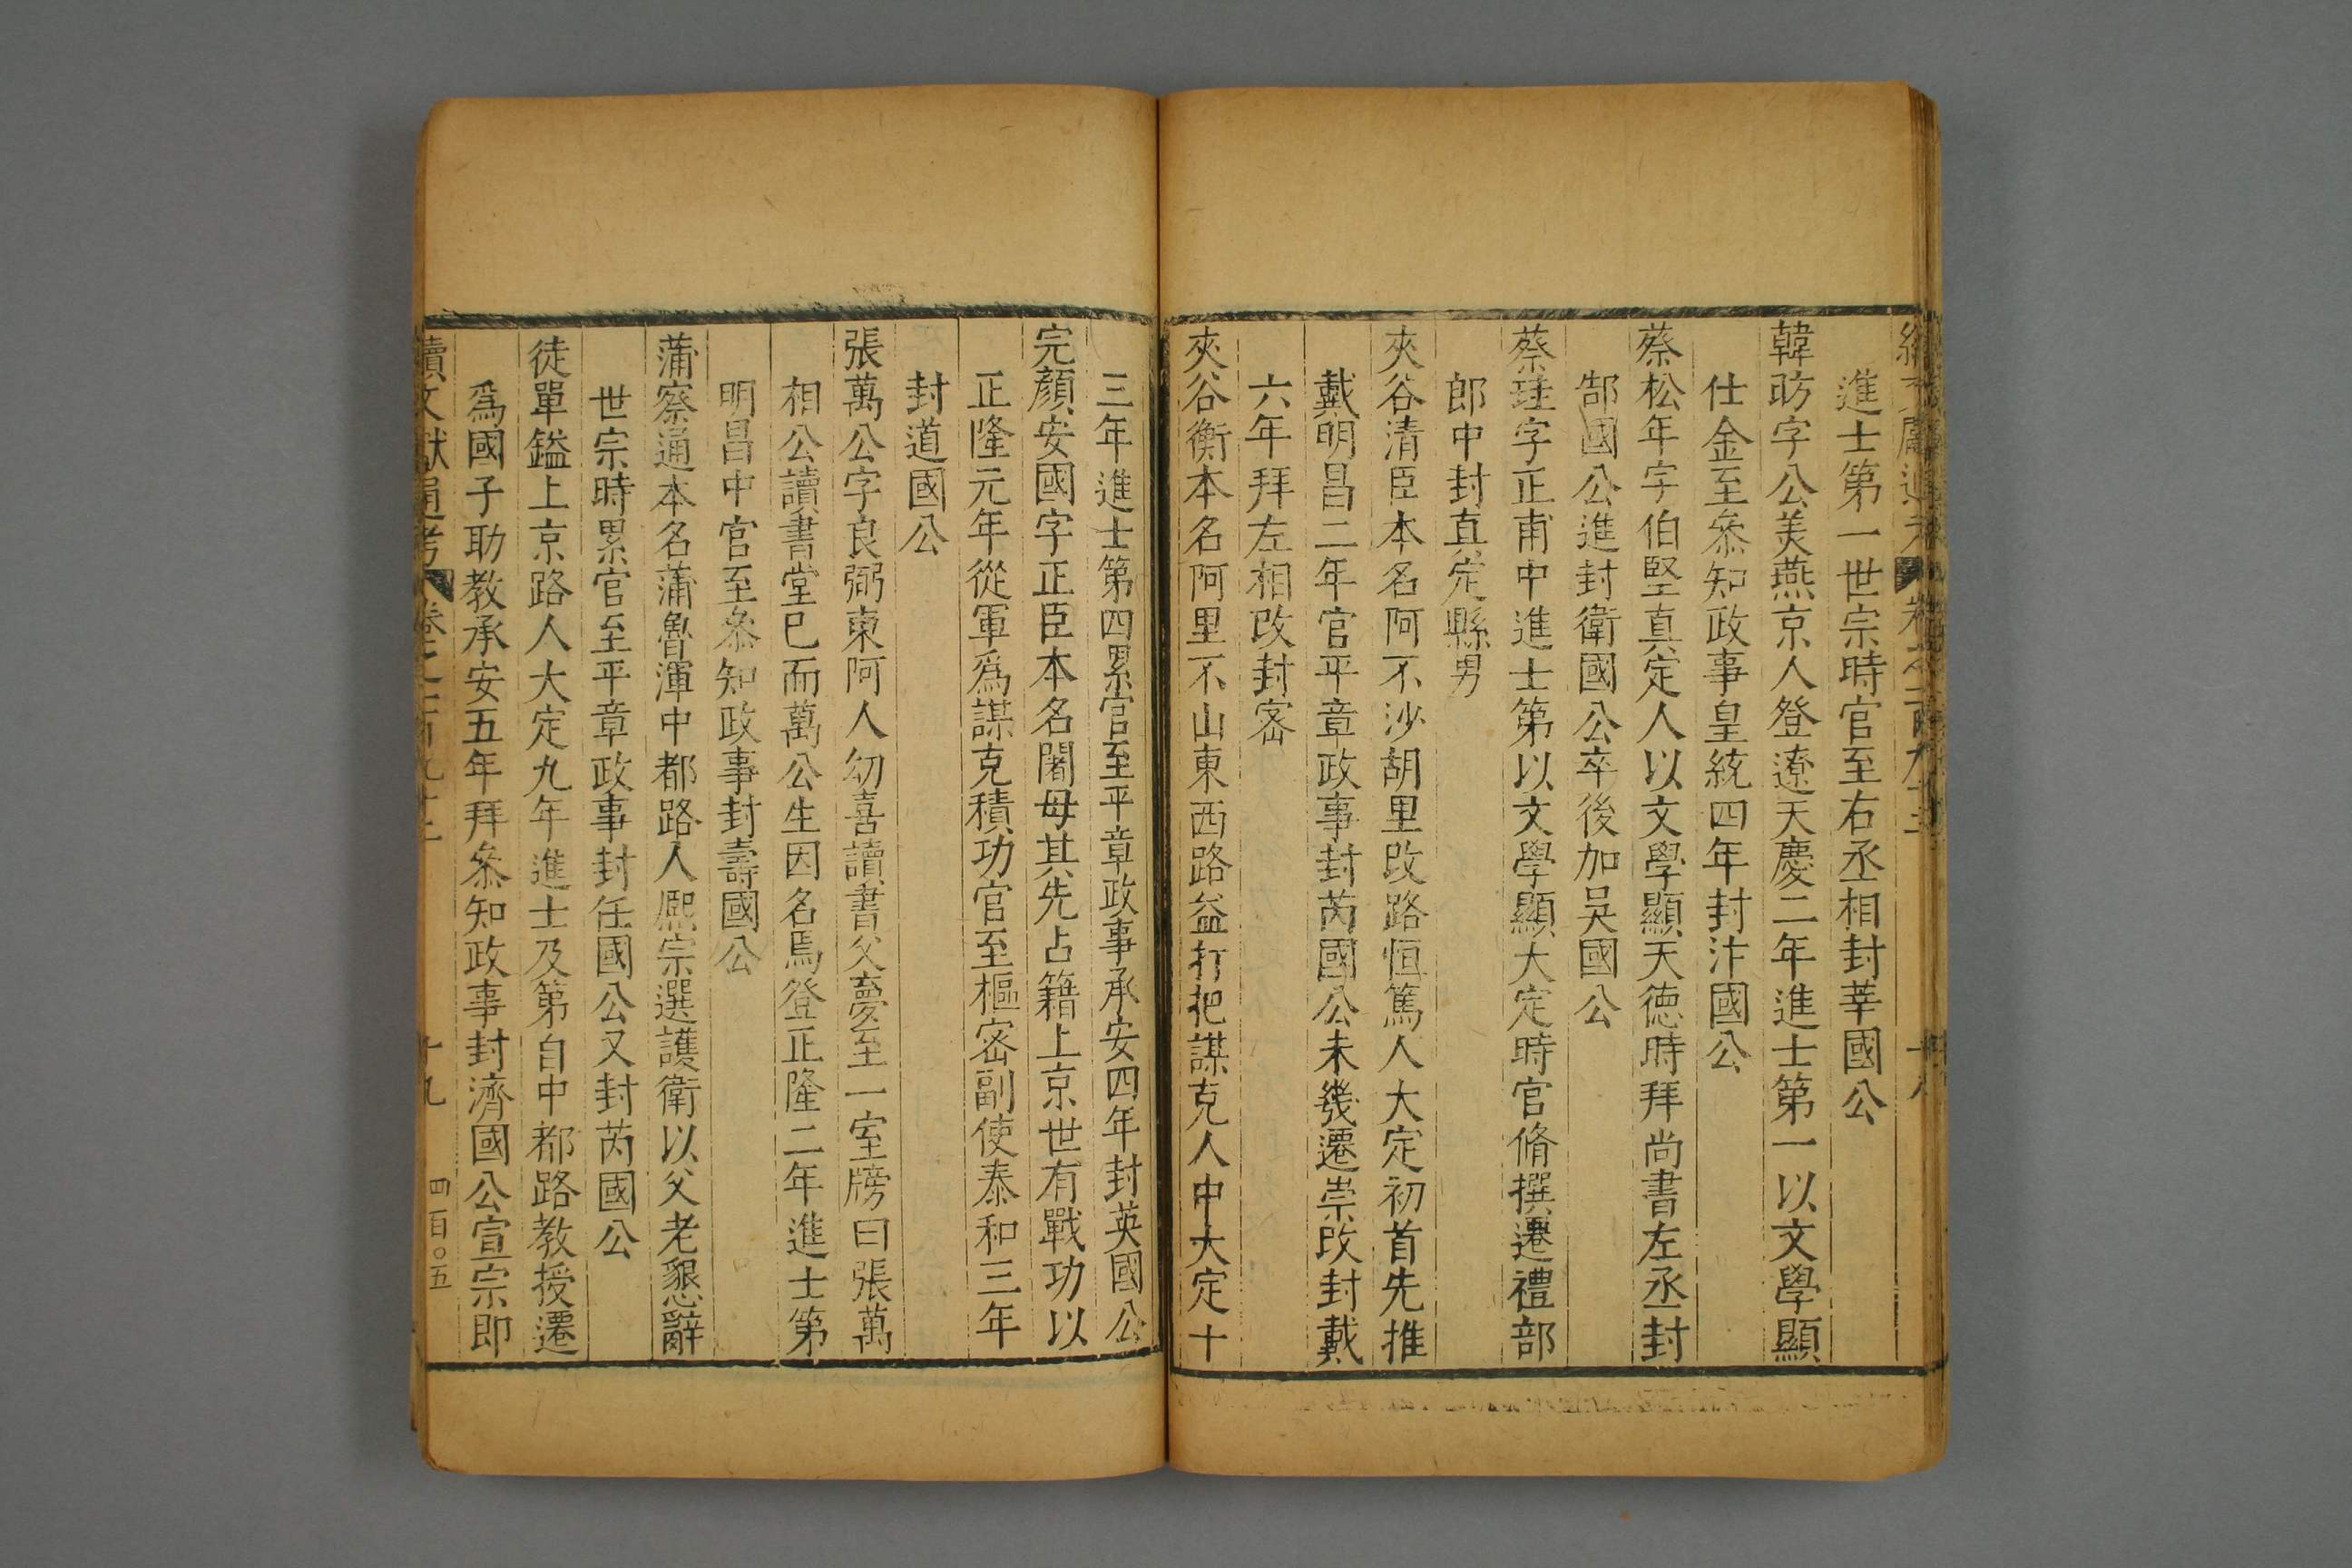 進士第一世宗時官至右丞相封莘國公
韓昉字公美燕京人登遼天慶二年進士第一以文學顯
仕金至叅知政事皇統四年封汴國公
蔡松年字伯堅真定人以文學顯天德時拜尚書左丞封
郜國公進封衛國公卒後加吳國公
蔡珪字正甫中進士第以文學顯大定時官脩撰遷禮部
郎中封真定縣男
夾谷清臣本名阿不沙胡里改路恒篤人大定初首先推
戴明昌二年官平章政事封芮國公未幾遷崇改封戴
六年拜左相改封密
夾谷衡本名阿里不山東西路益打把謀克人中大定十
三年進士第四累官至平章政事承安四年封英國公
完顏安國字正臣本名闍母其先占籍上京世有戰功以
正隆元年從軍爲謀克積功官至樞密副使泰和三年
封道國公
張萬公字良弼東阿人幼喜讀書父夢至一室牓曰張萬
相公讀書堂已而萬公生因名焉登正隆二年進士第
明昌中官至叅知政事封壽國公
蒲察通本名蒲魯渾中都路人熙宗選護衛以父老懇辭
世宗時累官至平章政事封任國公又封芮國公
徒單鎰上京路人大定九年進士及第自中都路教授遷
爲國子助教承安五年拜叅知政事封濟國公宣宗即
續文獻通考 卷之一百九十三 十九 四百〇五